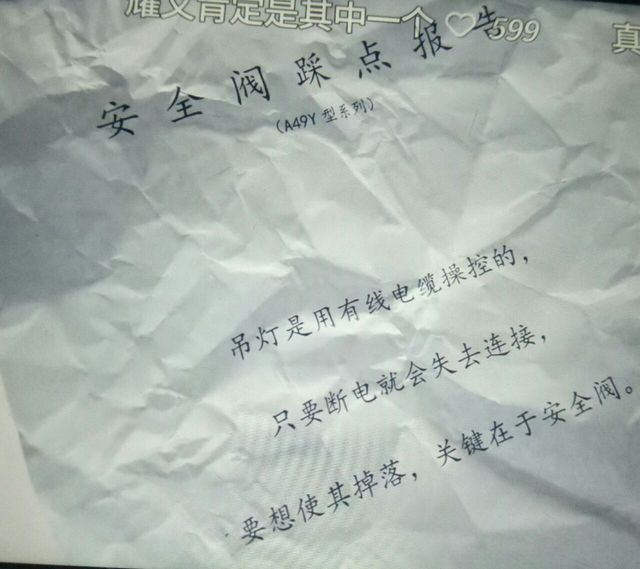 耀文肯定是其中一个 599
真
安全阀踩点报告
（A49Y型系列）
吊灯是用有线电缆操控的，
只要断电就会失去连接，
要想使其掉落，关键在于安全阀。